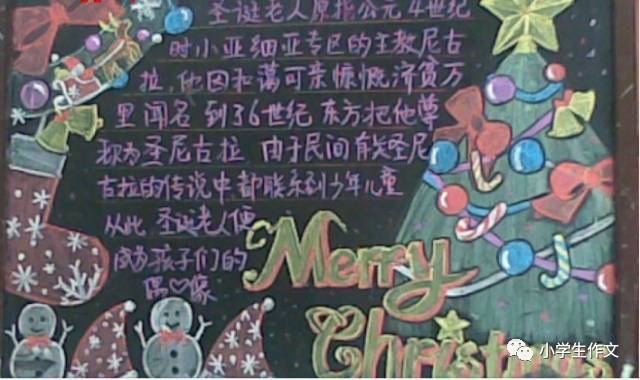 圣诞老人原指公元4世纪
时小亚细亚专区的主教尼古
拉,他因和蔼可亲慷慨济贫万
里闻名 到36世纪 东方把他尊
称为圣尼古拉 由于民间有关圣尼
古拉的传说中都联系到少年儿童
从此 圣诞老人便
成为孩子们的
偶♡像
Merry
Christmas
小学生作文